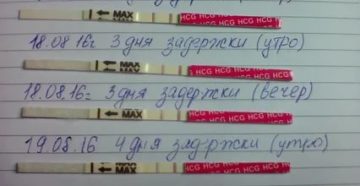 ← MAX HCG HCG HCG HCG HCG
18.08.16г 3 дня задержки (утро)
← MAX HCG HCG HCG HCG HCG
18.08.16г 3 дня задержки (вечер)
← MAX HCG HCG HCG HCG HCG
19.08.16 4 дня задержки (утро)
← MAX HCG HCG HCG HCG